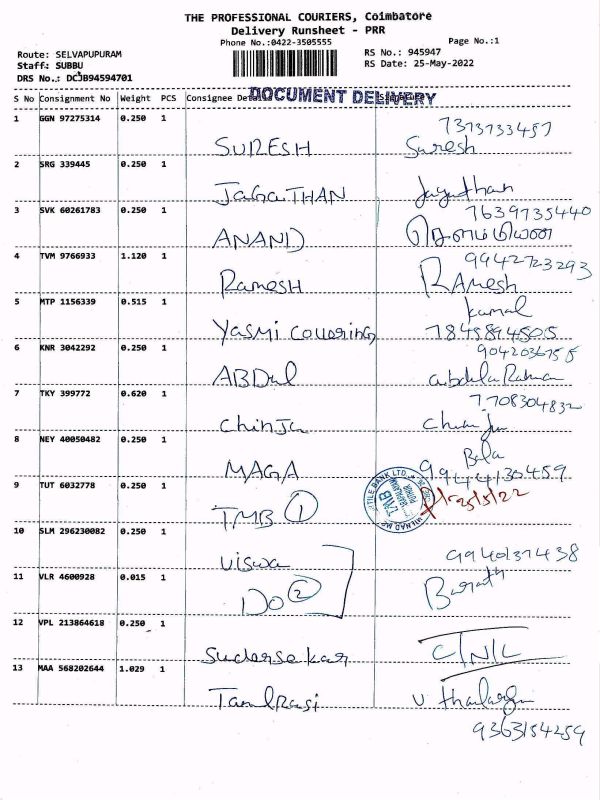 THE PROFESSIONAL COURIERS, Coimbatore
Delivery Runsheet - PRR
Phone No.:0422-3505555
Page No.:1
Route: SELVAPUPURAM
RS No.: 945947
Staff: SUBBU
RS Date: 25-May-2022
DRS No.: DCJB94594701
DOCUMENT DELIVERY
S No Consignment No Weight PCS Consignee Details Signature
1 GGN 97275314 0.250 1 SURESH 7373733457 Suresh
2 SRG 339445 0.250 1 JAGATHAN Jagathan
3 SVK 60261783 0.250 1 ANAND 7639735440
4 TVM 9766933 1.120 1 Ramesh 9942723293 RAmesh
5 MTP 1156339 0.515 1 Yasmi Covering kamal 7845894505
6 KNR 3042292 0.250 1 ABDul 9042036755 abdula Rahman
7 TKY 399772 0.620 1 Chinja 7708304832
8 NEY 40050482 0.250 1 MAGA Bala 9944130459
9 TUT 6032778 0.250 1 TMB 1 25/5/22
TMB
10 SLM 296230082 0.250 1 Viswa 9940237438
11 VLR 4600928 0.015 1 Do 2 Barath
12 VPL 213864618 0.250 1 Sudersekar C/N/L
13 MAA 568202644 1.029 1 Tamilrasi
9363154259